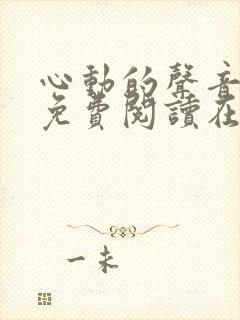 心動的聲音
免費閱讀在
一未